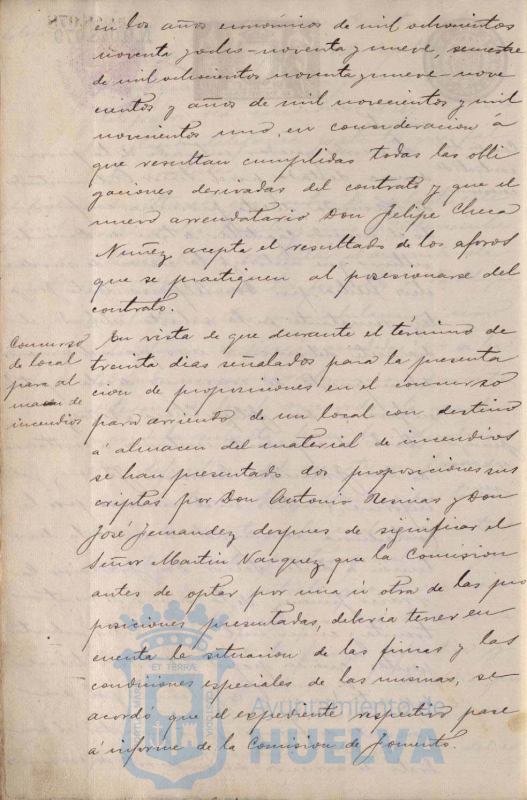 en los años económicos de mil ochocientos
noventa y ocho - noventa y nueve, semestre
de mil ochocientos noventa y nueve - nove
cientos y años de mil novecientos y mil
novecientos uno, en consideracion á
que resultan cumplidas todas las obli
gaciones derivadas del contrato y que el
nuevo arrendatario Don Felipe Checa
Nuñez acepta el resultado de los aforos
que se practiquen al posesionarse del
contrato.
Concurso
de local
para al
macen de
incendios
En vista de que durante el término de
treinta dias señalados para la presenta
cion de proposiciones en el concurso
para arriento de un local con destino
á almacen del material de incendios
se han presentado dos proposiciones sus
criptas por Don Antonio Resinas y Don
José Fernandez despues de significar el
Señor Martin Vazquez que la Comision
antes de optar por una ú otra de las pro
posiciones presentadas, deberia tener en
cuenta la situacion de las fincas y las
condiciones especiales de las mismas, se
acordó que el expediente respectivo pase
á informe de la Comision de Fomento.
ET TERRÆ
Ayuntamiento de
HUELVA